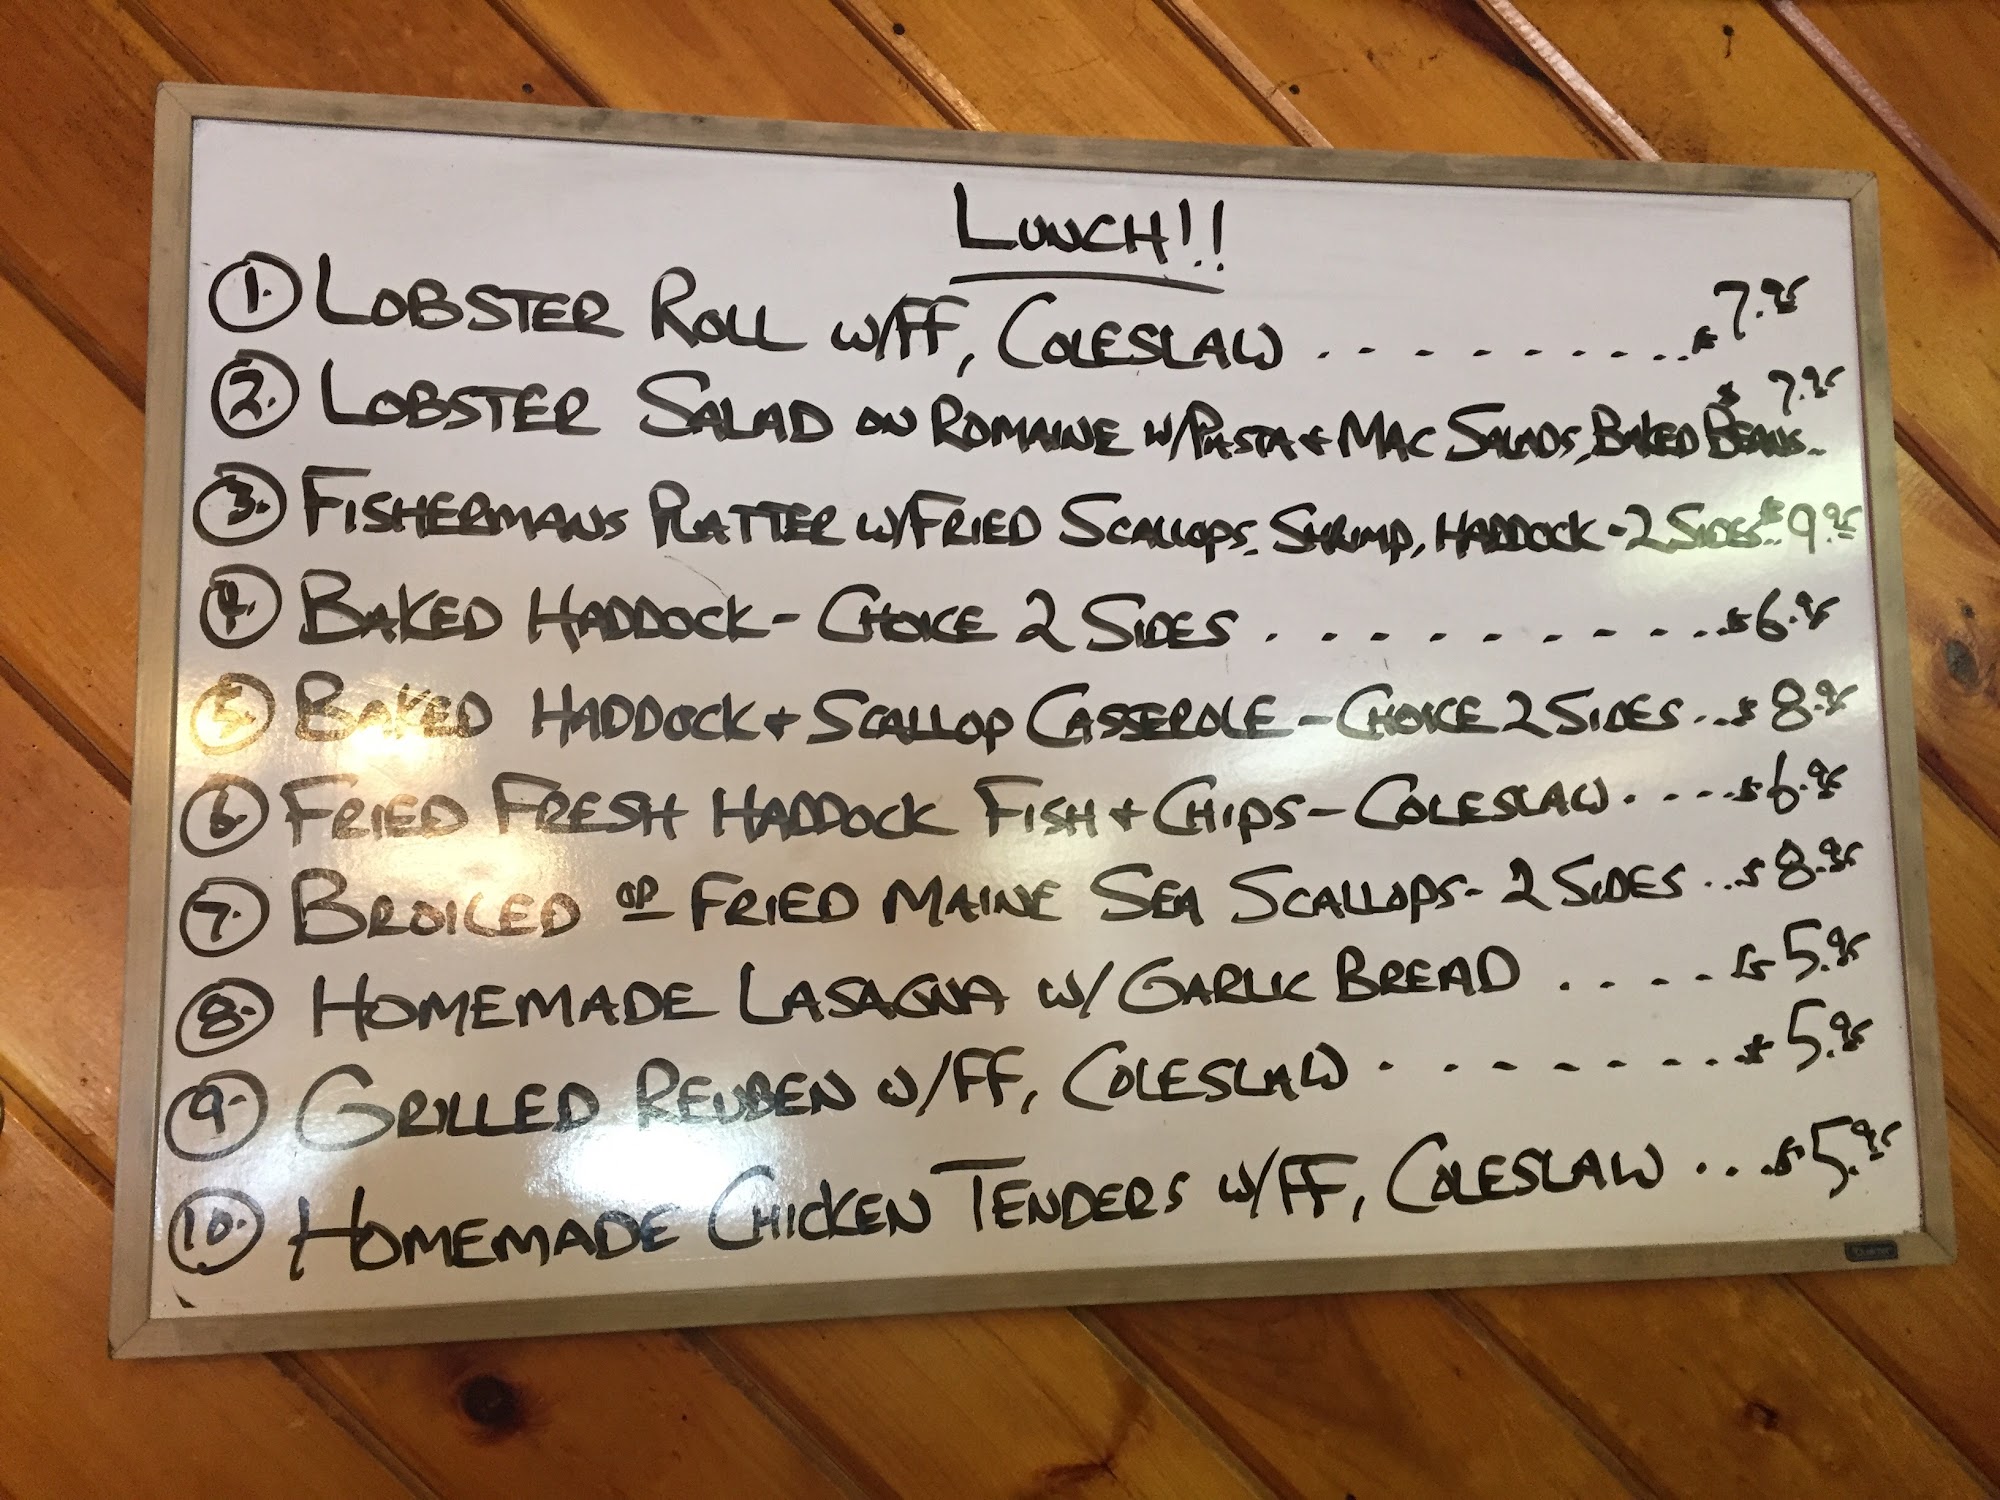 LUNCH!!
1. LOBSTER ROLL W/FF, COLESLAW . . . . . . . . . . $7.95
2. LOBSTER SALAD ON ROMAINE W/PASTA + MAC SALADS, BAKED BEANS. $7.95
3. FISHERMANS PLATTER W/FRIED SCALLOPS, SHRIMP, HADDOCK - 2 SIDES.. $9.95
4. BAKED HADDOCK - CHOICE 2 SIDES . . . . . . . . . . $6.95
5. BAKED HADDOCK + SCALLOP CASSEROLE - CHOICE 2 SIDES ... $8.95
6. FRIED FRESH HADDOCK FISH + CHIPS - COLESLAW . . . . $6.95
7. BROILED OR FRIED MAINE SEA SCALLOPS - 2 SIDES ... $8.95
8. HOMEMADE LASAGNA W/ GARLIC BREAD . . . . . $5.95
9. GRILLED REUBEN W/FF, COLESLAW . . . . . . . . $5.95
10. HOMEMADE CHICKEN TENDERS W/FF, COLESLAW ... $5.95